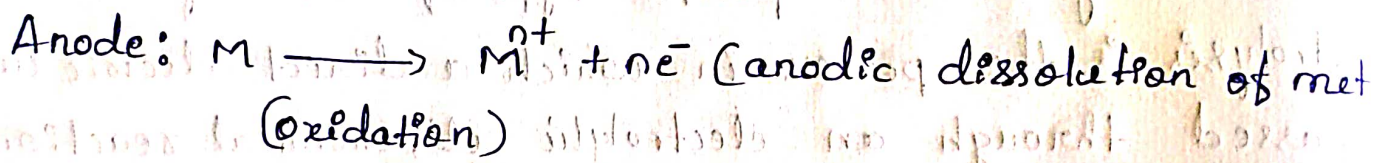 Anode: M ⟶ Mⁿ⁺ + ne⁻ (anodic dissolution of met
(oxidation)